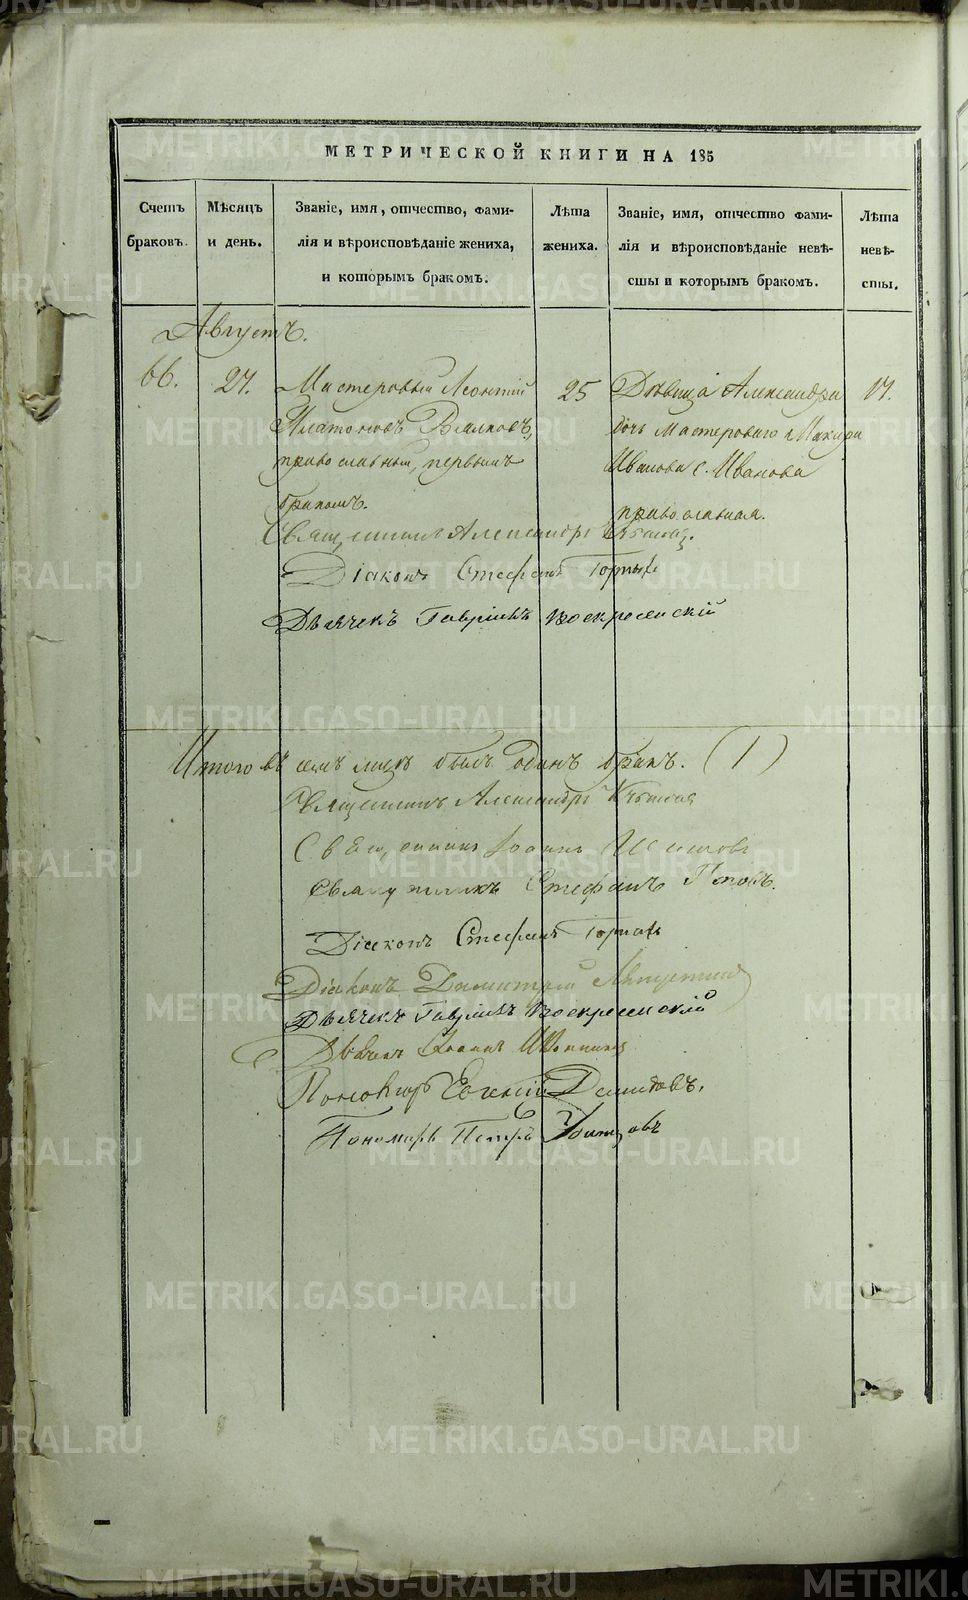 МЕТРИЧЕСКОЙ КНИГИ НА 185
Счетъ браковъ.
Мѣсяцъ и день.
Званіе, имя, отчество, фами-
лія и вѣроисповѣданіе жениха,
и которымъ бракомъ.
Лѣта жениха.
Званіе, имя, отчество фами-
лія и вѣроисповѣданіе невѣ-
сты и которымъ бракомъ.
Лѣта невѣ-
сты.
Августъ.
66.
27.
Мастеровый Леонтій
Платоновъ
православный, первымъ
бракомъ.
25
Дѣвица Александра
дочь Мастероваго Макара
Иванова с. Иванова
православная.
17.
Священникъ Александръ
Діаконъ Стефанъ
Дьячекъ Гавріилъ Воскресенскій
Итого въ семъ мцѣ былъ одинъ бракъ. (1)
Священникъ Александръ
Священникъ Іоаннъ
Священникъ Стефанъ Поповъ.
Діаконъ Стефанъ
Діаконъ Димитрій
Дьячекъ Гавріилъ Воскресенскій
Дьячекъ Іоаннъ
Пономарь Евгеній Демидовъ.
Пономарь Петръ
METRIKI.GASO-URAL.RU